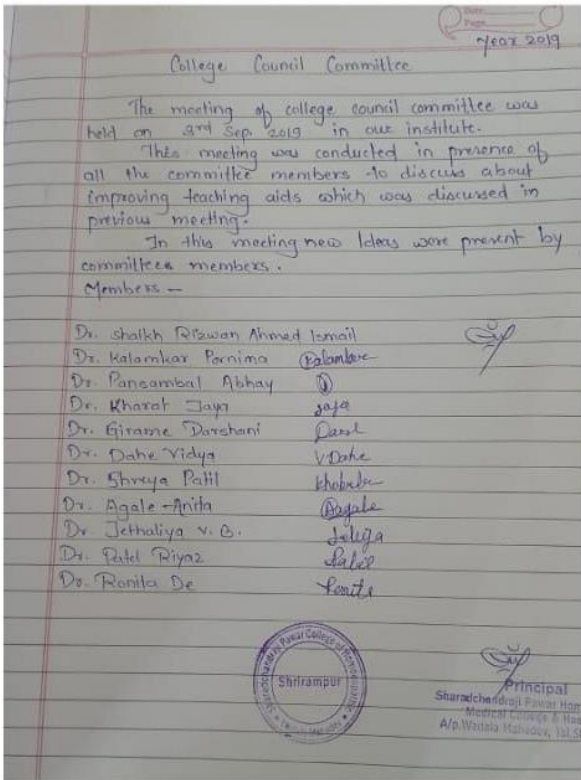 Date
Page
Year 2019
College Council Committee
The meeting of college council committee was
held on 3rd Sep. 2019 in our institute.
This meeting was conducted in presence of
all the committee members to discuss about
improving teaching aids which was discussed in
previous meeting.
In this meeting new Ideas were present by
committees members.
Members -
Dr. Shaikh Rizwan Ahmed Ismail
Dr. Kalamkar Pornima
Dr. Pansambal Abhay
Dr. Kharat Jaya Jaya
Dr. Girame Darshani
Dr. Dahe Vidya V Dahe
Dr. Shreya Patil
Dr. Agale Anita Aagale
Dr. Jethaliya V. B.
Dr. Patel Riyaz
Dr. Ronita De
Sharadchandraji Pawar College of Homoeopathic
Shrirampur
Principal
Sharadchandraji Pawar Hom
Medical College & Hos
A/p. Wadala Mahadev, Tal. S